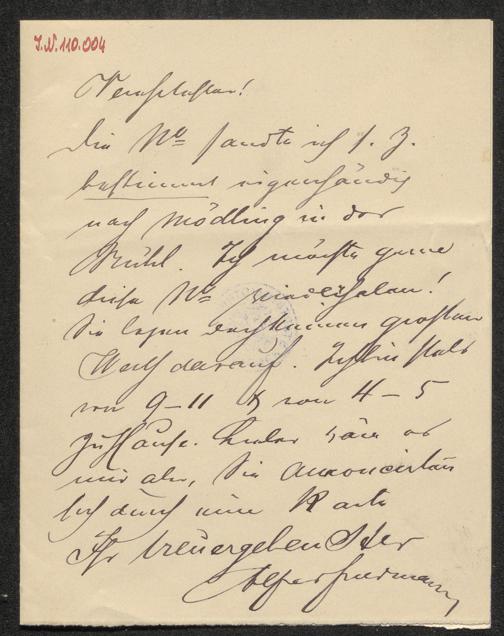 J.N. 110.004
Verehrtester!
Die No sandte ich s. Z.
bestimmt eigenhändig
nach Mödling in der
Brühl. Ich möchte gerne
diese No
Sie legen doch keinen großen
Werth darauf. Ich bin stets
von 9–11 & von 4–5
zu Hause. Lieber wäre es
mir aber, Sie annoncirten
sich durch eine Karte
Ihr treuergebenster
Alfred Friedmann